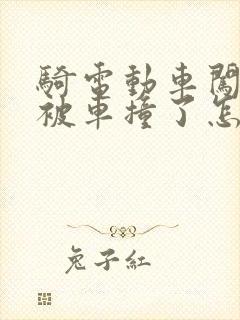 騎電動車闖
被車撞了怎
兔子紅